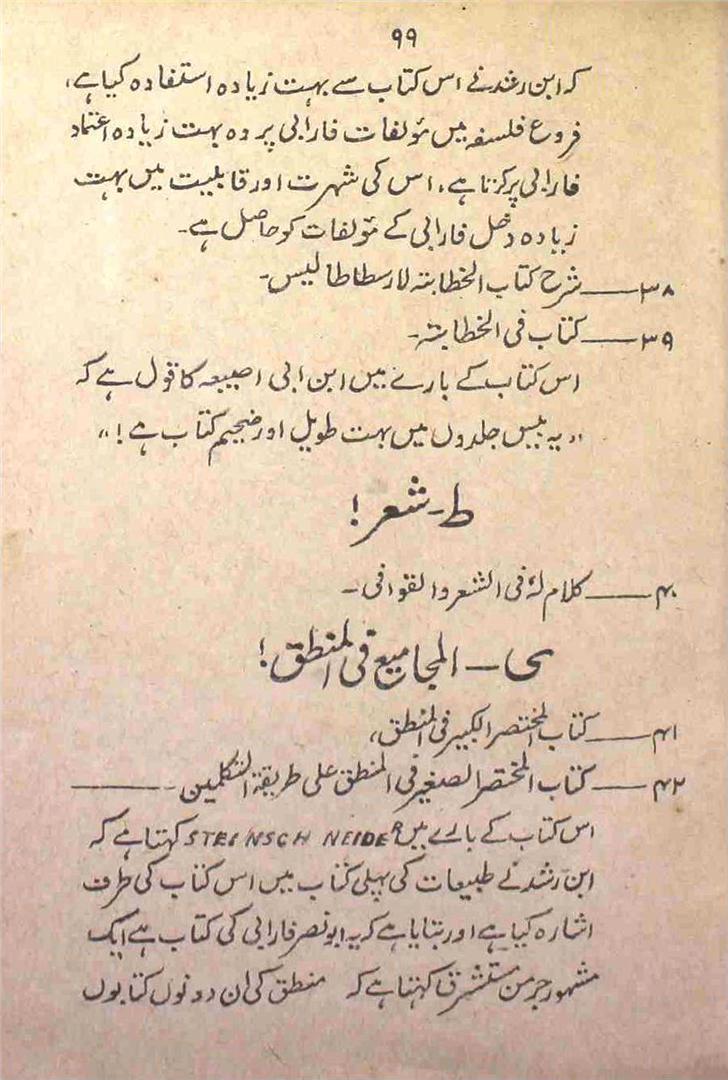 ۹۹
کہ ابن رشد نے اس کتاب سے بہت زیادہ استفادہ کیا ہے،
فروع فلسفہ میں مؤلفات فارابی پر وہ بہت زیادہ اعتماد
فارابی پر کرتا ہے، اس کی شہرت اور قابلیت میں بہت
زیادہ دخل فارابی کے مؤلفات کو حاصل ہے۔
۳۸——شرح کتاب الخطابتہ لارسطاطالیس۔
۳۹——کتاب فی الخطابتہ۔
اس کتاب کے بارے میں ابن ابی اصیبعہ کا قول ہے کہ
"یہ بیس جلدوں میں بہت طویل اور ضخیم کتاب ہے!"
ط۔ شعر!
۴۰——کلام لہٗ فی الشعر والقوافی۔
ی۔ المجامیع فی المنطق!
۴۱——کتاب المختصر الکبیر فی المنطق،
۴۲——کتاب المختصر الصغیر فی المنطق علی طریقۃ المتکلمین۔——
اس کتاب کے بارے میں STEINSCH NEIDER کہتا ہے کہ
ابن رشد نے طبیعات کی پہلی کتاب میں اس کتاب کی طرف
اشارہ کیا ہے اور بتایا ہے کہ یہ ابو نصر فارابی کی کتاب ہے ایک
مشہور جرمن مستشرق کہتا ہے کہ منطق کی ان دونوں کتابوں